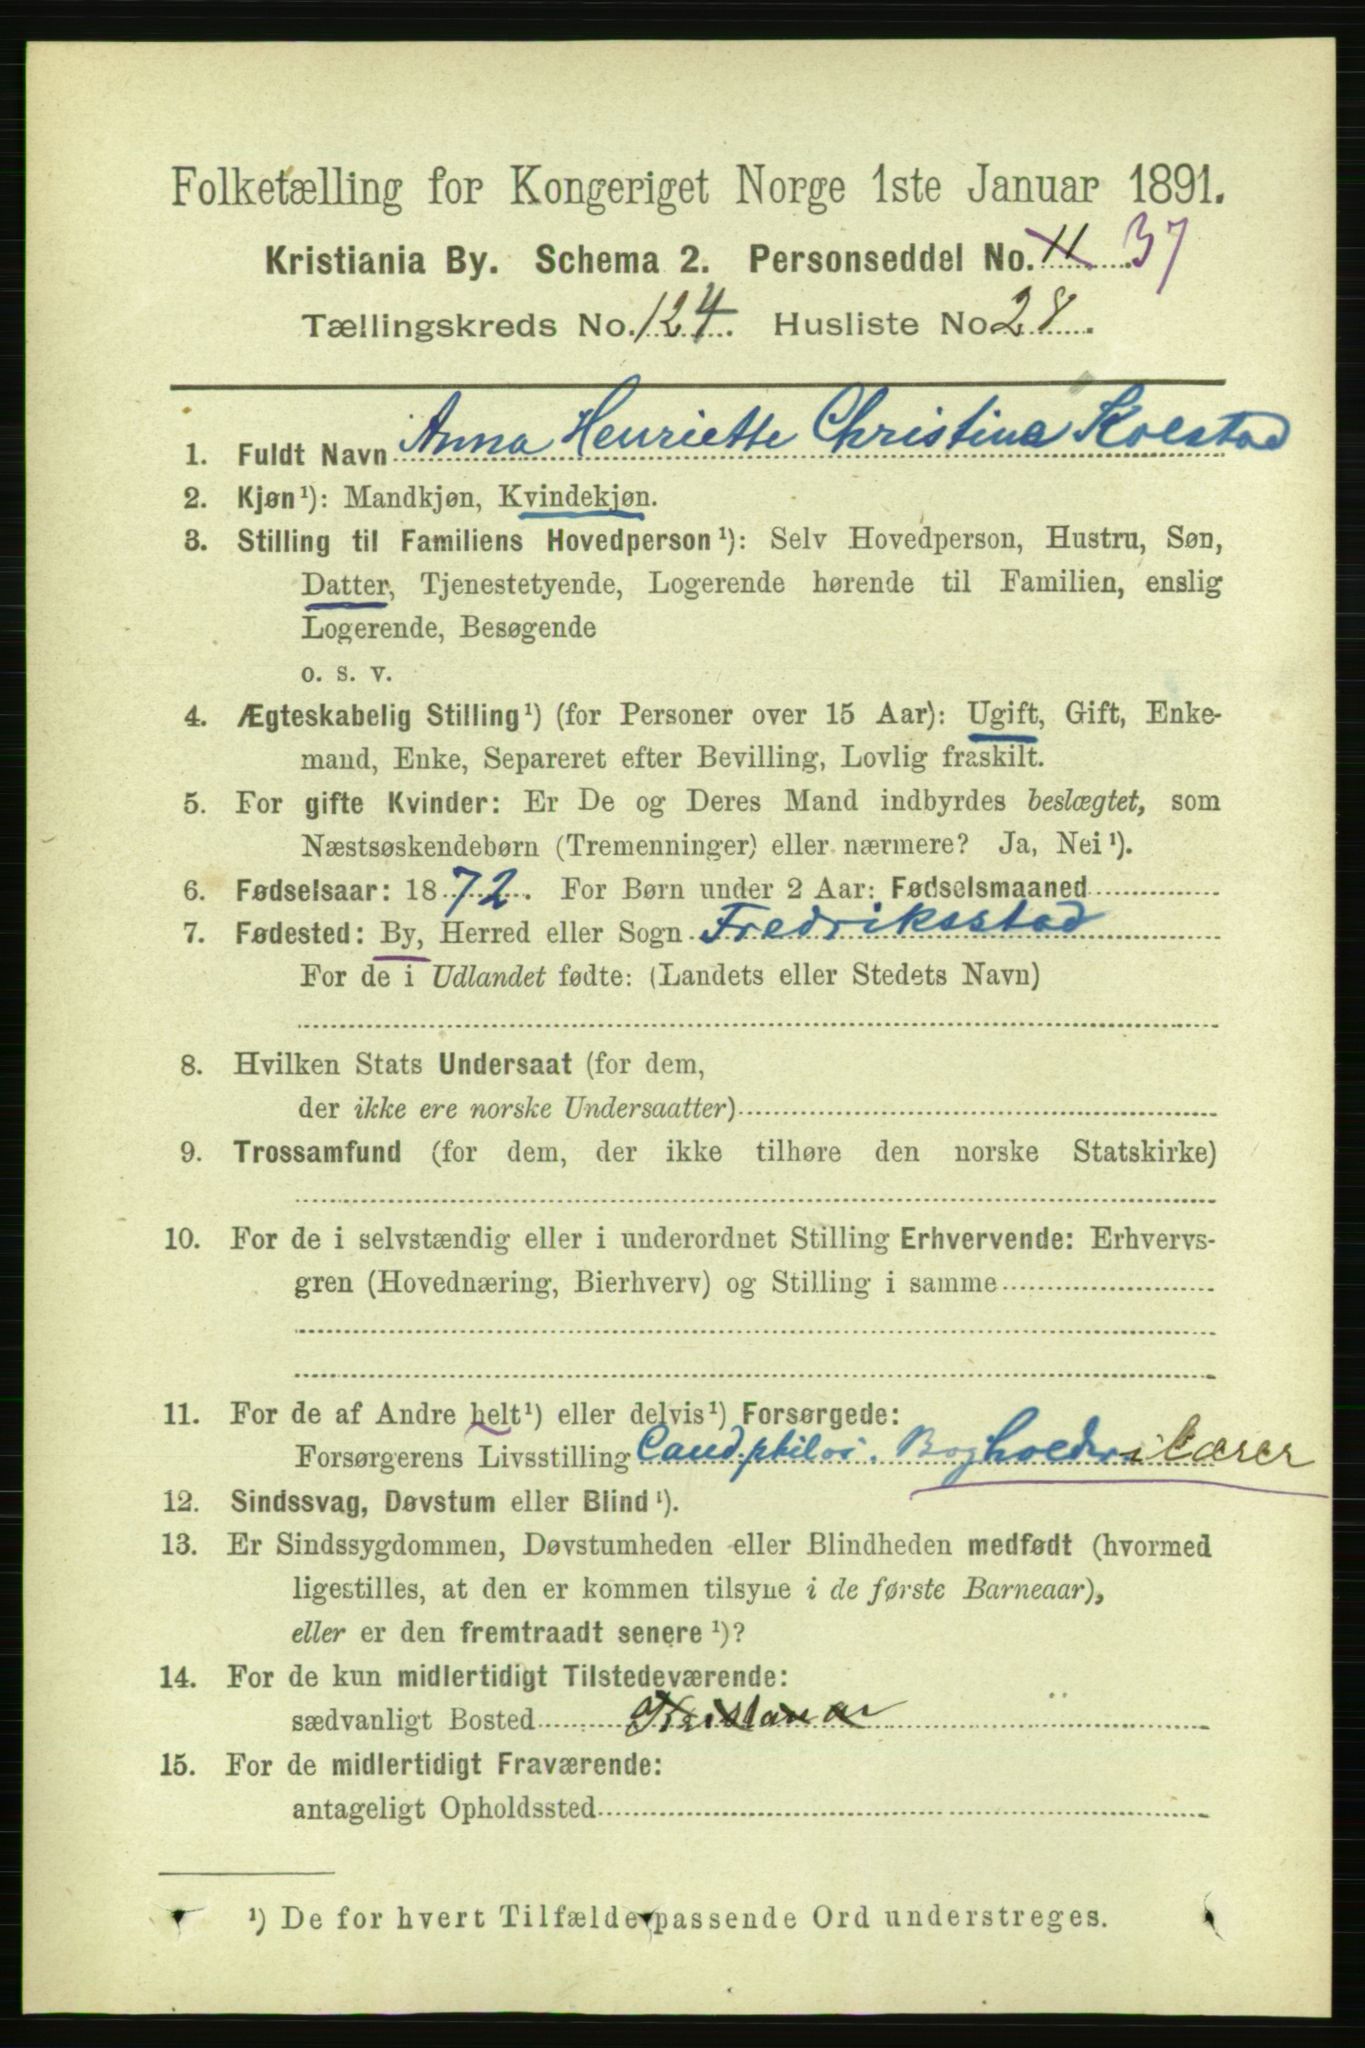 Folketælling for Kongeriget Norge 1ste Januar 1891.
Kristiania By. Schema 2. Personseddel No. 11 37
Tællingskreds No. 124. Husliste No 28.
1. Fuldt Navn Anna Henriette Christine Kolstad
2. Kjøn¹): Mandkjøn, Kvindekjøn.
3. Stilling til Familiens Hovedperson¹): Selv Hovedperson, Hustru, Søn,
Datter, Tjenestetyende, Logerende hørende til Familien, enslig
Logerende, Besøgende
o. s. v.
4. Ægteskabelig Stilling¹) (for Personer over 15 Aar): Ugift, Gift, Enke-
mand, Enke, Separeret efter Bevilling, Lovlig fraskilt.
5. For gifte Kvinder: Er De og Deres Mand indbyrdes beslægtet, som
Næstsøskendebørn (Tremenninger) eller nærmere? Ja, Nei¹).
6. Fødselsaar: 1872. For Børn under 2 Aar: Fødselsmaaned
7. Fødested: By, Herred eller Sogn Fredriksstad
For de i Udlandet fødte: (Landets eller Stedets Navn)
8. Hvilken Stats Undersaat (for dem,
der ikke ere norske Undersaatter)
9. Trossamfund (for dem, der ikke tilhøre den norske Statskirke)
10. For de i selvstændig eller i underordnet Stilling Erhvervende: Erhvervs-
gren (Hovednæring, Bierhverv) og Stilling i samme
11. For de af Andre helt¹) eller delvis¹) Forsørgede:
Forsørgerens Livsstilling Cand. philos. Bogholder
12. Sindssvag, Døvstum eller Blind¹).
13. Er Sindssygdommen, Døvstumheden eller Blindheden medfødt (hvormed
ligestilles, at den er kommen tilsyne i de første Barneaar),
eller er den fremtraadt senere¹)?
14. For de kun midlertidigt Tilstedeværende:
sædvanligt Bosted
15. For de midlertidigt Fraværende:
antageligt Opholdssted
¹) De for hvert Tilfælde passende Ord understreges.